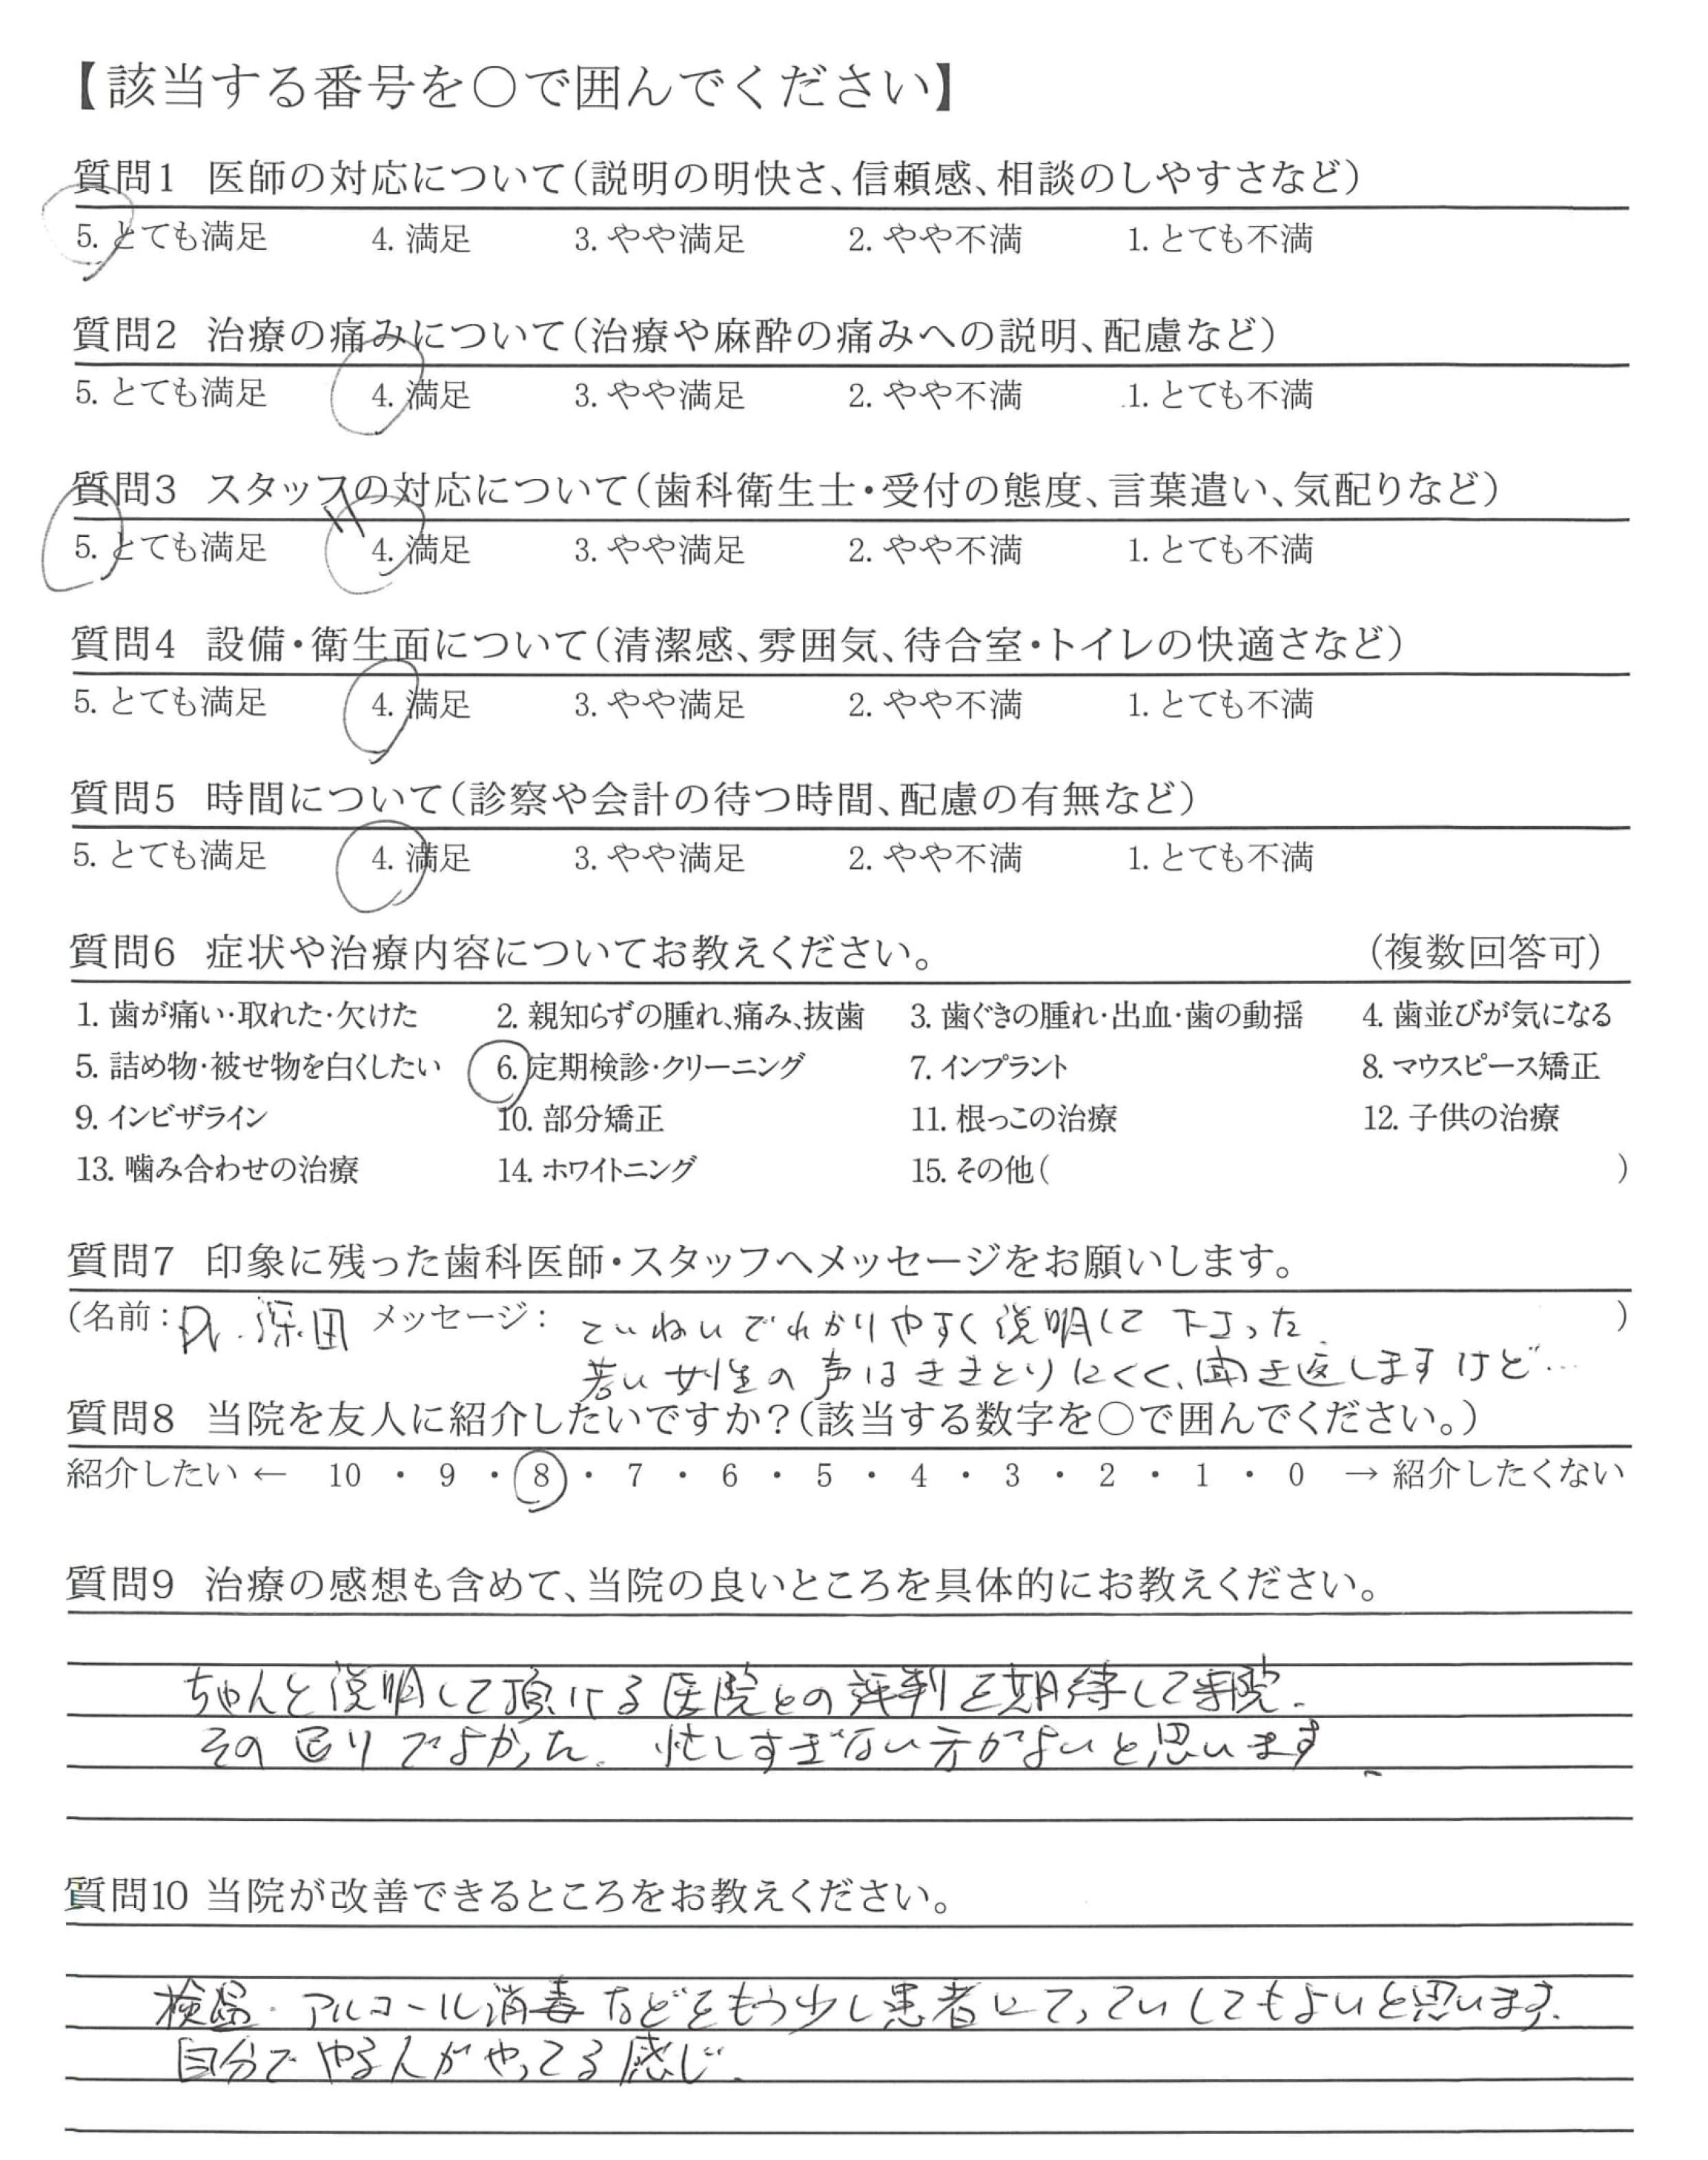 【該当する番号を○で囲んでください】
質問1 医師の対応について(説明の明快さ、信頼感、相談のしやすさなど)
5. とても満足 4. 満足 3. やや満足 2. やや不満 1. とても不満
質問2 治療の痛みについて(治療や麻酔の痛みへの説明、配慮など)
5. とても満足 4. 満足 3. やや満足 2. やや不満 1. とても不満
質問3 スタッフの対応について(歯科衛生士・受付の態度、言葉遣い、気配りなど)
5. とても満足 4. 満足 3. やや満足 2. やや不満 1. とても不満
質問4 設備・衛生面について(清潔感、雰囲気、待合室・トイレの快適さなど)
5. とても満足 4. 満足 3. やや満足 2. やや不満 1. とても不満
質問5 時間について(診察や会計の待つ時間、配慮の有無など)
5. とても満足 4. 満足 3. やや満足 2. やや不満 1. とても不満
質問6 症状や治療内容についてお教えください。 (複数回答可)
1. 歯が痛い・取れた・欠けた 2. 親知らずの腫れ、痛み、抜歯 3. 歯ぐきの腫れ・出血・歯の動揺 4. 歯並びが気になる
5. 詰め物・被せ物を白くしたい 6. 定期検診・クリーニング 7. インプラント 8. マウスピース矯正
9. インビザライン 10. 部分矯正 11. 根っこの治療 12. 子供の治療
13. 噛み合わせの治療 14. ホワイトニング 15. その他( )
質問7 印象に残った歯科医師・スタッフへメッセージをお願いします。
(名前:Dr.深田 メッセージ: ていねいでわかりやすく説明して下さった. )
若い女性の声はききとりにくく、聞き返しますけど…
質問8 当院を友人に紹介したいですか?(該当する数字を○で囲んでください。)
紹介したい ← 10 ・ 9 ・ 8 ・ 7 ・ 6 ・ 5 ・ 4 ・ 3 ・ 2 ・ 1 ・ 0 → 紹介したくない
質問9 治療の感想も含めて、当院の良いところを具体的にお教えください。
ちゃんと説明して頂ける医院との評判を期待して来院.
その通りでよかった. 忙しすぎない方がよいと思います
質問10 当院が改善できるところをお教えください。
検温・アルコール消毒などをもう少し患者にてっていしてもよいと思います.
自分でやる人がやってる感じ.